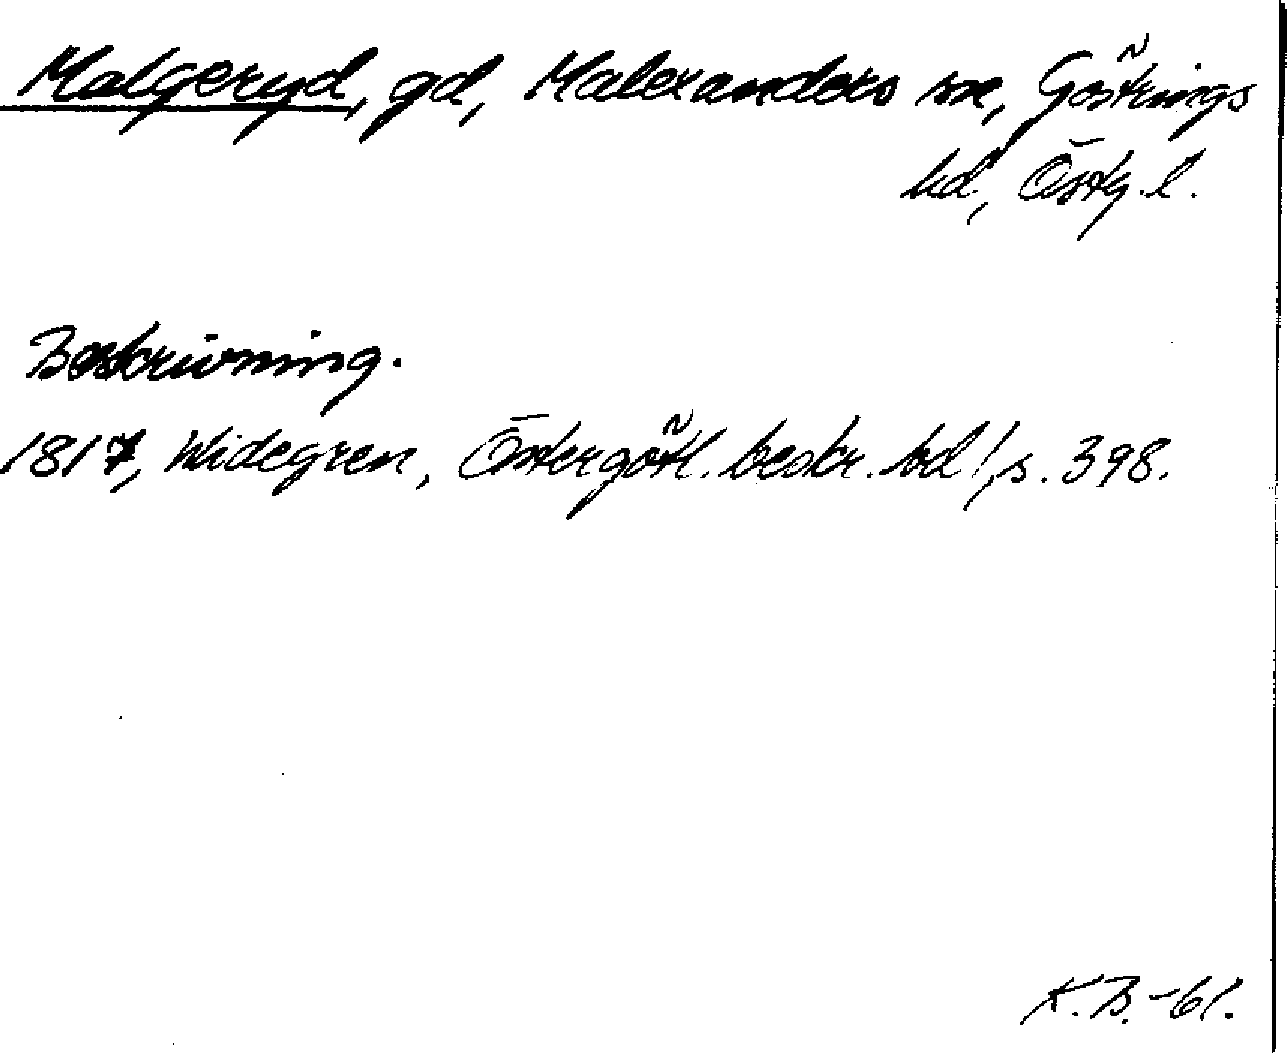 Malgeryd, gd, Malexanders sn, Göstrings
hd, Östg. l.
Beskrivning.
1817, Widegren, Östergötl. beskr. bd 1, s. 398.
K.B.-61.